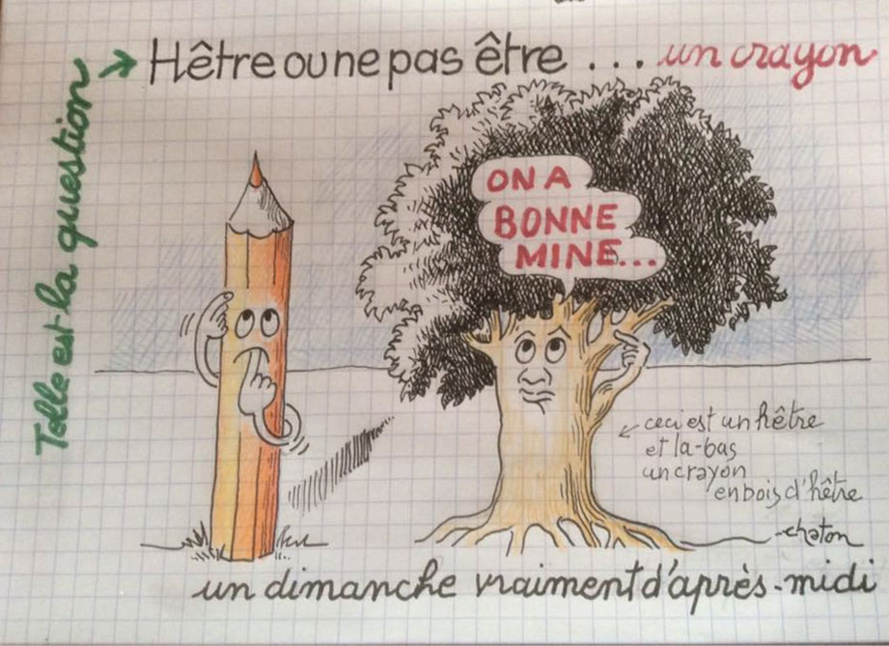 Hêtre ou ne pas être ... un crayon
Telle est la question
ON A
BONNE
MINE...
ceci est un hêtre
et la-bas
un crayon
en bois d'hêtre
chaton
un dimanche vraiment d'après-midi